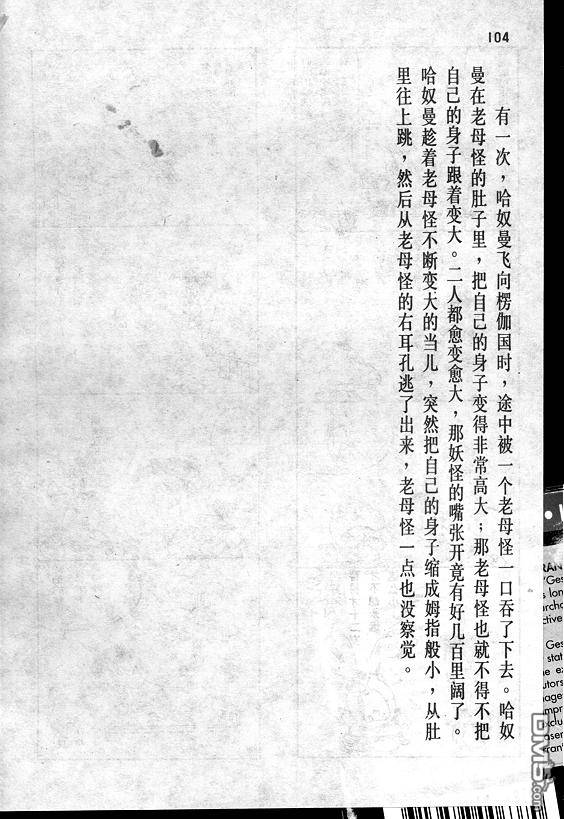 104
有一次，哈奴曼飞向楞伽国时，途中被一个老母怪一口吞了下去。哈奴
曼在老母怪的肚子里，把自己的身子变得非常高大；那老母怪也就不得不把
自己的身子跟着变大。二人都愈变愈大，那妖怪的嘴张开竟有好几百里阔了。
哈奴曼趁着老母怪不断变大的当儿，突然把自己的身子缩成姆指般小，从肚
里往上跳，然后从老母怪的右耳孔逃了出来，老母怪一点也没察觉。
DM5.com